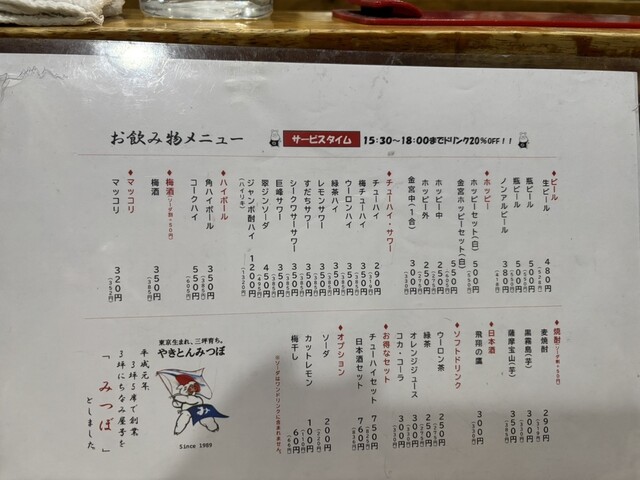 お飲み物メニュー
サービスタイム 15:30～18:00までドリンク20%OFF!!
♦ビール
生ビール 480円
瓶ビール 500円
瓶ビール 550円
ノンアルビール 380円
♦ホッピー
ホッピーセット(白) 500円
金宮ホッピーセット(白) 550円
ホッピー中 250円
ホッピー外 250円
金宮中(1合) 300円
♦チューハイ・サワー
チューハイ 290円
梅チューハイ 350円
ウーロンハイ 350円
緑茶ハイ 350円
レモンサワー 350円
すだちサワー 350円
シークワーサーサワー 350円
巨峰サワー 350円
翠ジンソーダ 450円
ジャンボ酎ハイ 1200円
♦ハイボール
角ハイボール 350円
コークハイ 550円
♦梅酒
梅酒 350円
♦マッコリ
マッコリ 320円
♦焼酎
麦焼酎 290円
黒霧島(芋) 300円
薩摩宝山(芋) 350円
♦日本酒
飛翔の鷹 300円
♦ソフトドリンク
ウーロン茶 250円
緑茶 250円
オレンジジュース 300円
コカ・コーラ 300円
♦お得なセット
チューハイセット 750円
日本酒セット 760円
♦オプション
ソーダ 200円
カットレモン 100円
梅干し 60円
東京生まれ、三坪育ち。
やきとんみつぼ
み
Since 1989
平成元年、
3坪5席で創業
3坪にちなみ屋号を
「みつぼ」
としました